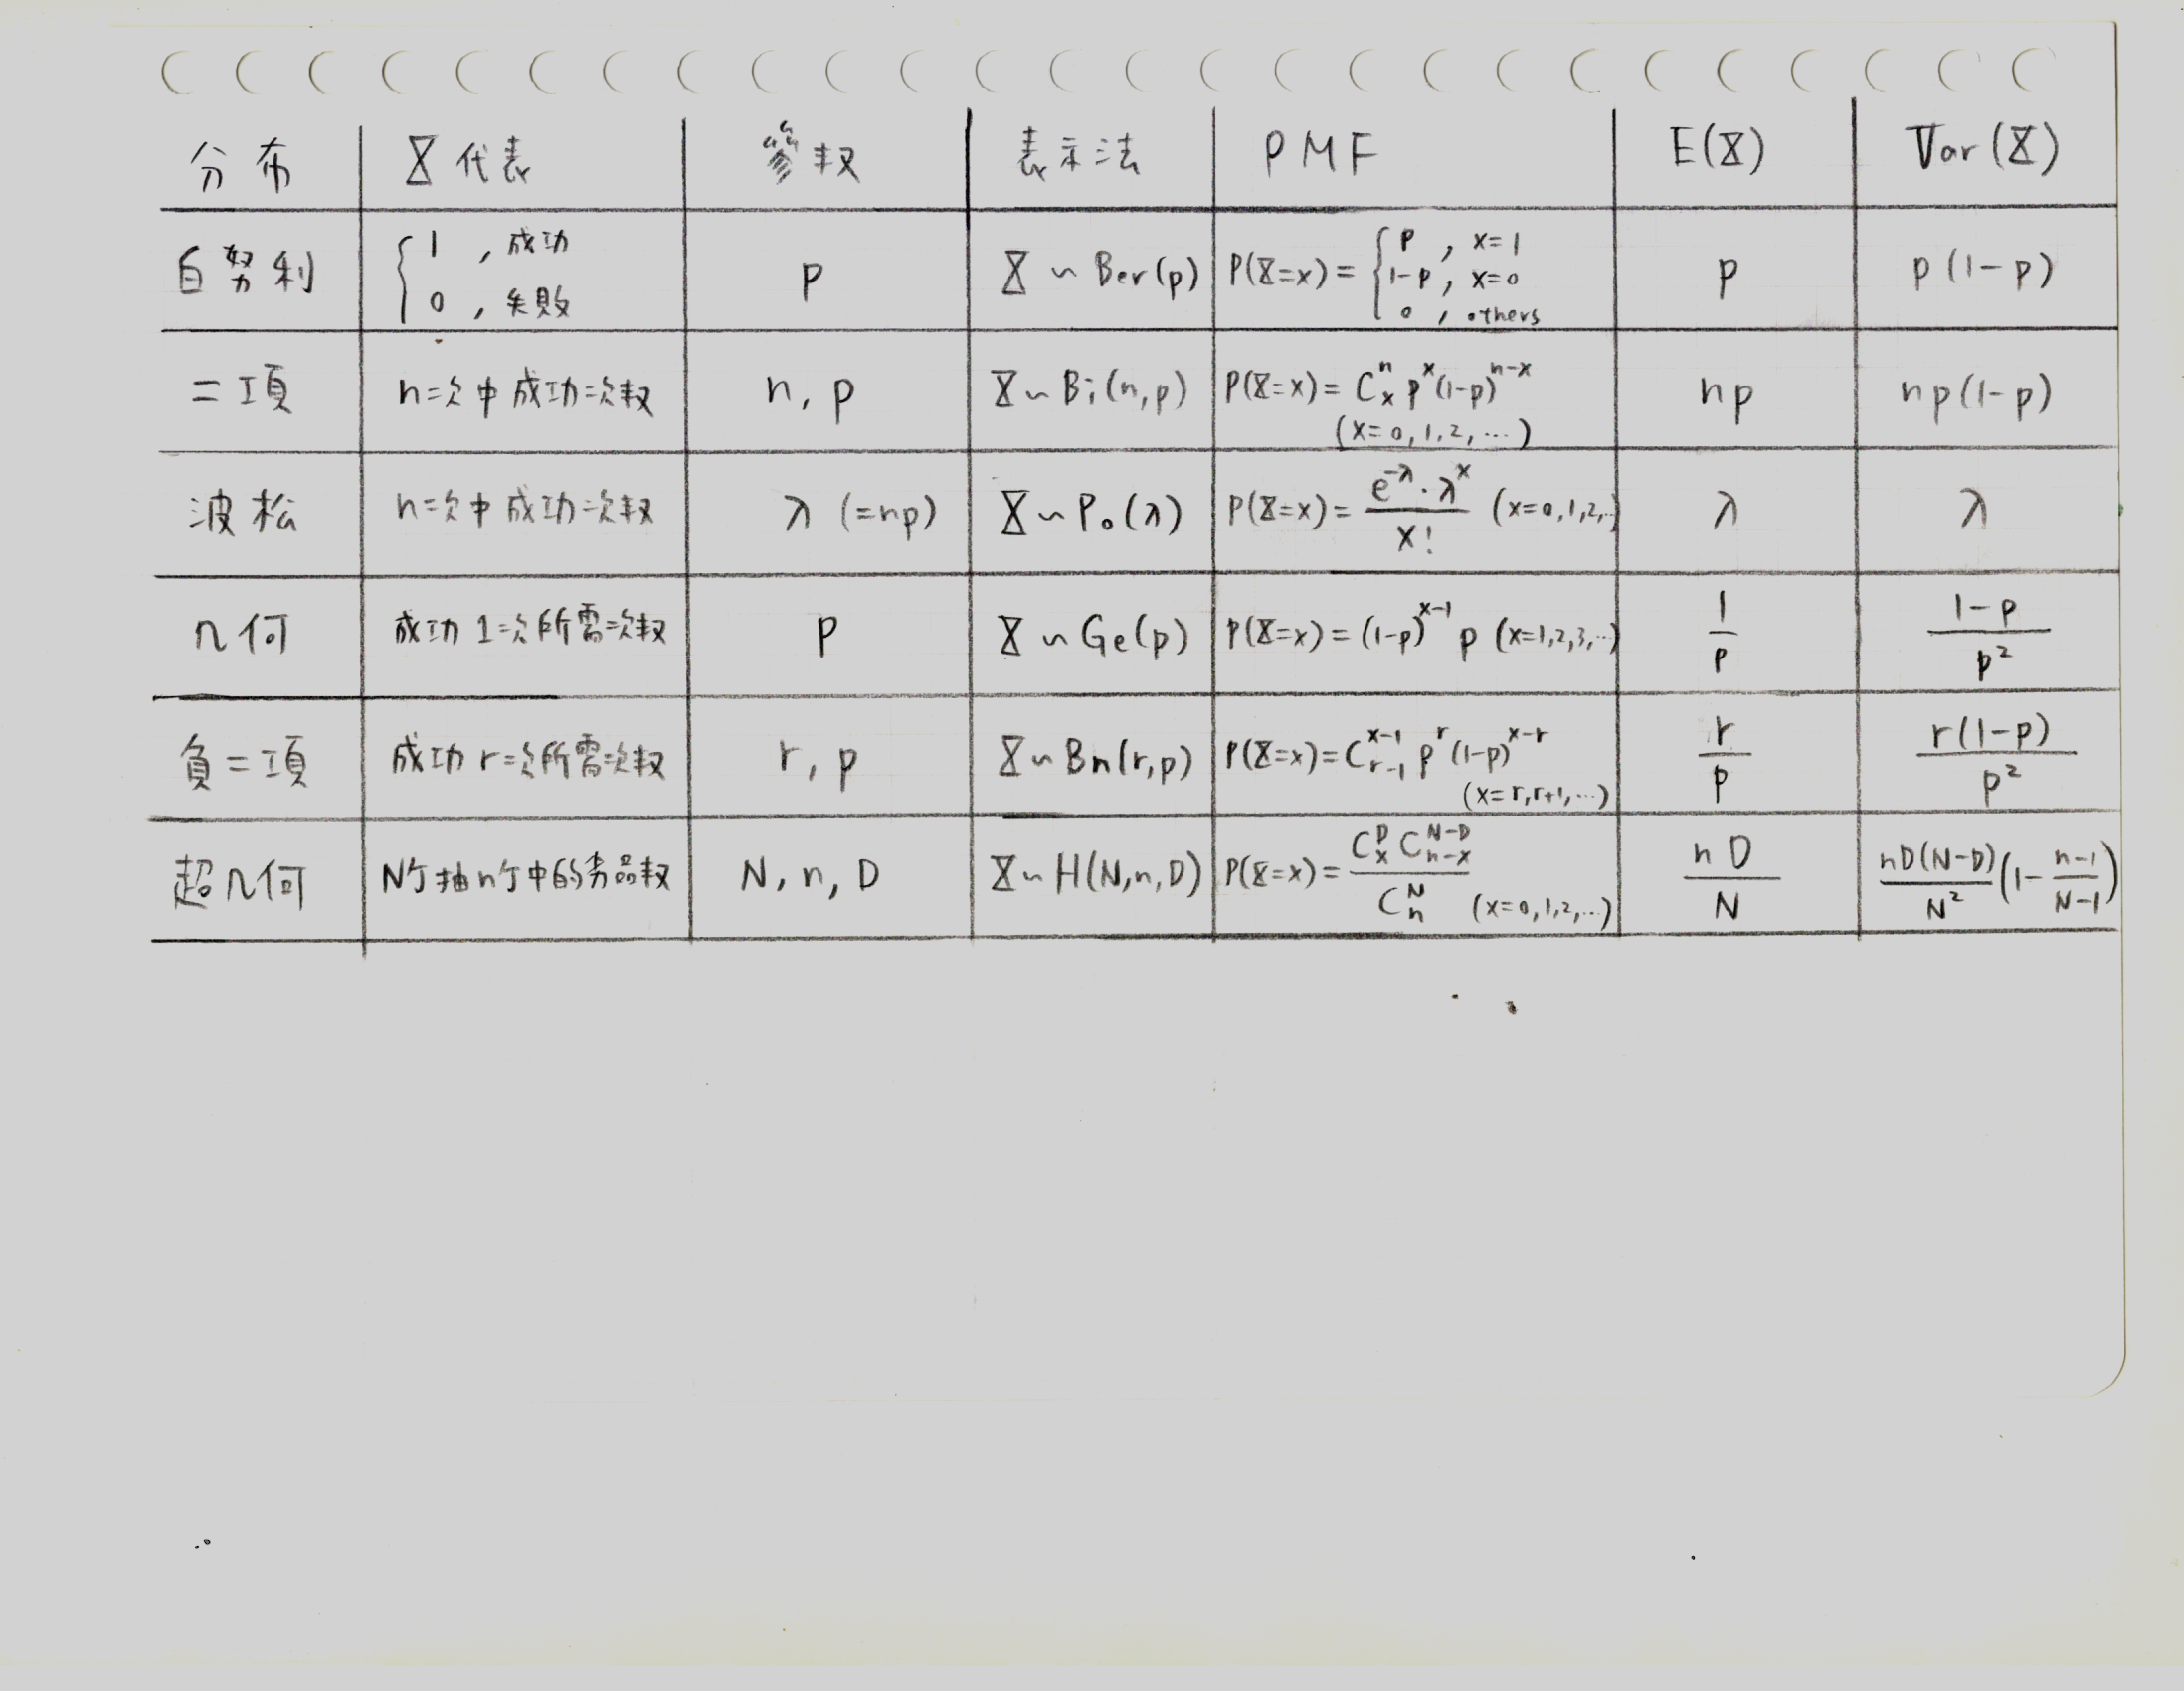 分布 X 代表 參数 表示法 PMF E(X) Var(X)
白努利 { 1 , 成功 0 , 失敗 p X ~ Ber(p) P(X=x) = { p , x=1 1-p , x=0 0 , others p p(1-p)
二項 n次中成功次数 n, p X ~ Bi(n,p) P(X=x) = C^n_x p^x (1-p)^{n-x} np np(1-p)
(x=0,1,2,...)
波松 n次中成功次数 λ (=np) X ~ Po(λ) P(X=x) = e^{-λ}·λ^x / x! (x=0,1,2,..) λ λ
几何 成功1次所需次数 p X ~ Ge(p) P(X=x) = (1-p)^{x-1} p (x=1,2,3,..) 1/p 1-p/p²
負二項 成功r次所需次数 r, p X ~ Bn(r,p) P(X=x) = C^{x-1}_{r-1} p^r (1-p)^{x-r} r/p r(1-p)/p²
(x=r,r+1,...)
超几何 N个抽n个中的劣品数 N, n, D X ~ H(N,n,D) P(X=x) = C^D_x C^{N-D}_{n-x} / C^N_n (x=0,1,2,...) nD/N nD(N-D)/N² (1 - n-1/N-1)